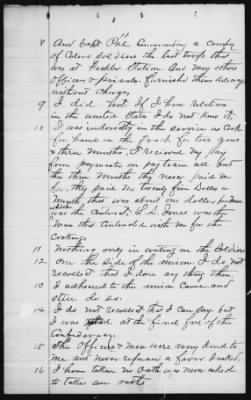 11
8 And Capt Pal. Commanding a company
of Colord Soldiers the last troops that
was at Fackler Station. And many other
officers & privates furnished them
without charge
9 I did not If I have relatives
in the United States I do not know it.
10 I was in the service as Cook
for hands on the for two years
& three months I received my pay
from paymaster on pay train all but
the three months they never paid me
for, they paid me twenty five Dollars a
month this was about one dollar
which the Contract. L. D. Jones was the
man that contracted with me for the
Cooking.
11 Nothing only in waiting on the Soldiers
12 One the side of the union I do not
recollect that I done any thing then,
13 I adhered to the union Cause and
still do so.
14 I do not recollect that I can say but
I was glad at the final fall of the
Confederacy.
15 The Officers & men were very kind to
me and never refused a favor I asked.
16 I have taken no oath was never asked
to take an oath